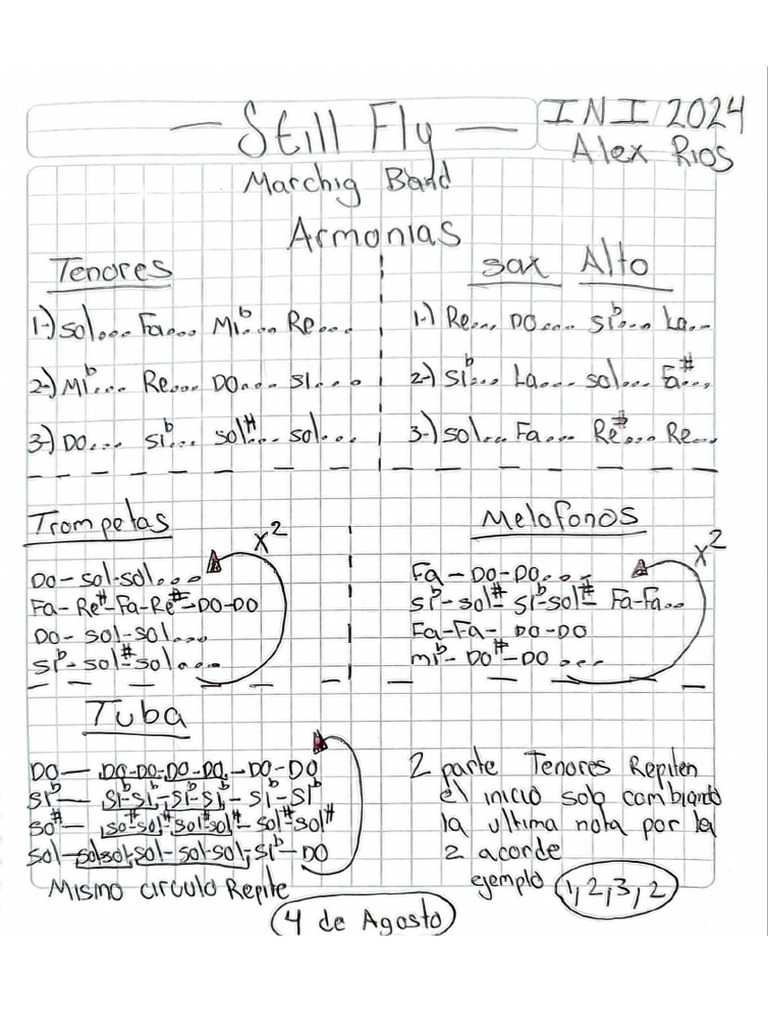 — Still Fly —
INI 2024
Alex Rios
Marchig Band
Armonias
Tenores
1-) Sol.... Fa.... Mib.... Re....
2-) Mib... Re.... DO.... SI....
3-) DO.... Sib.... Sol#... Sol....
Sax Alto
1-) Re.... DO.... Sib.... La...
2-) Sib... La.... Sol.... Fa#...
3-) Sol... Fa.... Re#... Re...
Trompetas
X2
Do - Sol-Sol....
Fa - Re#-Fa-Re#-DO-DO
Do - Sol-Sol....
Sib - Sol#-Sol....
Melofonos
X2
Fa - DO-DO....
Sib-Sol# Sib-Sol# Fa-Fa...
Fa-Fa- DO-DO
Mib- DO#-DO ...
Tuba
DO— DO-DO-DO-DO-DO-DO
Sib— Sib-Sib-Sib-Sib-Sib-Sib
So#— So#-Sol#-Sol#-Sol#-Sol#
Sol-Solsol-Sol-Sol-Sol-Sib-DO
Mismo circulo Repite
2 parte Tenores Repiten
el inicio solo cambiando
la ultima nota por la
2 acorde
ejemplo 1,2,3,2
4 de Agosto